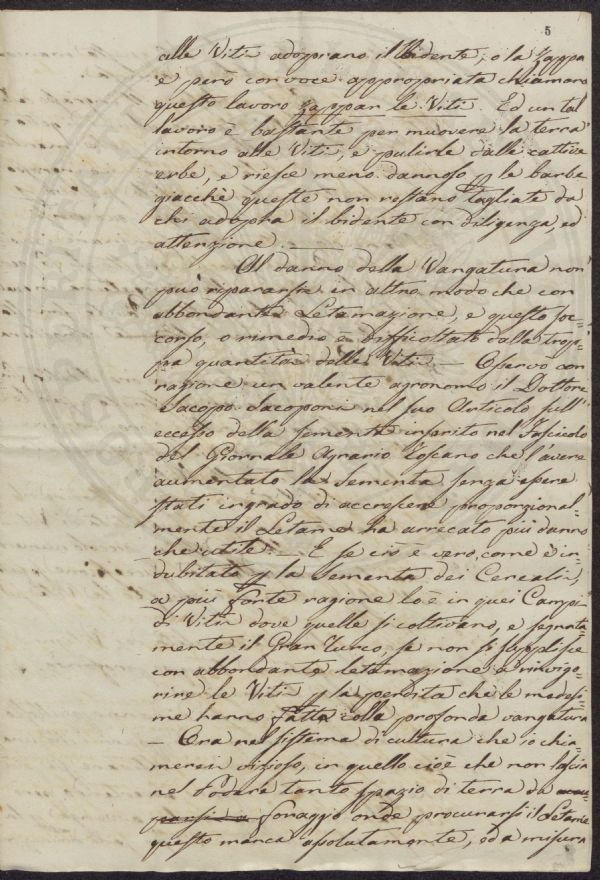 5
alle Viti adoprano il Bidente, o la Zappa
e però con voce appropriata chiamano
questo lavoro zappar le Viti. Ed un tal
lavoro è bastante per muovere la terra
intorno alle Viti, e pulirle dalle cattive
erbe, e riesce meno dannoso p le barbe
giacchè queste non restano tagliate da
chi adopra il bidente con diligenza, ed
attenzione. —
Al danno della Vangatura non
può ripararsi in altro modo che con
abbondante Letamazione, e questo soc=
corso, o rimedio è difficoltato dalla trop=
pa quantità delle Viti — Osservò con
ragione un valente agronomo il Dottore
Jacopo Jacoponi nel suo Articolo sull'
eccesso della sementa inserito nel Fascicolo
del Giornale Agrario Toscano che l'avere
aumentato la Sementa senza essere
stati in grado di accrescere proporzional=
mente il Letame ha arrecato più danno
che utile — E se ciò è vero, come è in=
dubitato p la Sementa dei Cereali,
a più forte ragione lo è in quei Campi
di Viti dove quelle si coltivano, e segnata=
mente il Gran Turco, se non si supplisce
con abbondante letamazione a rinvigo=
rire le Viti p la perdita che le medesi=
me hanno fatta colla profonda vangatura
— Ora nel sistema di cultura che io chia=
merei vizioso, in quello cioè che non lascia
nel Podere tanto spazio di terra da
foraggio onde procurarsi il Letame
questo manca assolutamente, ed a misura